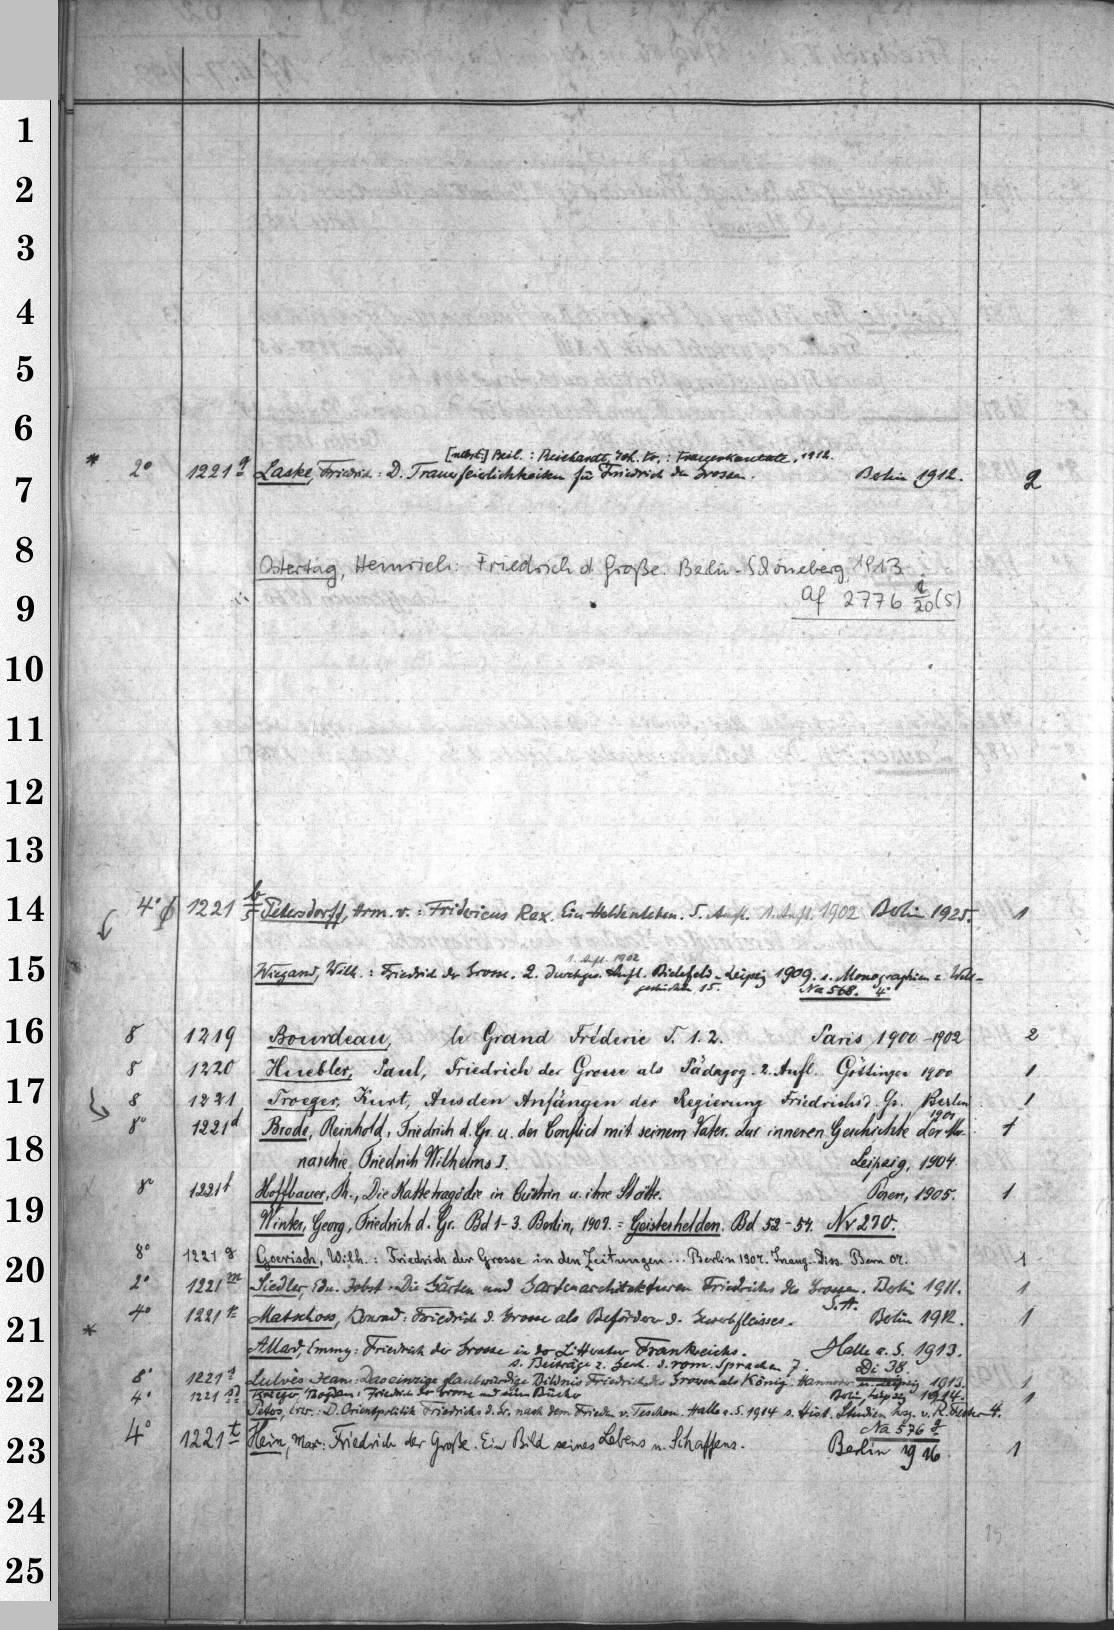 1
2
3
4
5
6
[mbest.] Beil. : Reichardt, Joh. Fr. : Trauerkantate. 1912.
* 2° 1221 q Laske, Friedrich : D. Trauerfeierlichkeiten für Friedrich den Grossen. Berlin 1912. 2
7
8 Ostertag, Heinrich: Friedrich d. Große. Berlin-Schöneberg 1913
9 Af 2776 20(5)
10
11
12
13
14 4° 1221 b/5 Petersdorff, Herm. v. : Fridericus Rex. Ein Heldenleben. 5. Aufl. 1. Aufl. 1902 Berlin 1925. 1
1. Aufl. 1902
15 Wiegand, Wilh. : Friedrich der Grosse. 2. durchges. Aufl. Bielefeld-Leipzig 1909. s. Monographien z. Welt-
geschichte 15. Na 568. 4°
16 8 1219 Bourdeau, le Grand Fréderic T. 1. 2. Paris 1900-1902 2
8 1220 Huebler, Paul, Friedrich der Grosse als Pädagog. 2. Aufl. Göttingen 1900 1
17 8 1221 Troeger, Kurt, Aus den Anfängen der Regierung Friedrichs d. Gr. Berlin 1
1901
8° 1221 d Brode, Reinhold, Friedrich d. Gr. u. der Conflict mit seinem Vater. Zur inneren Geschichte der Mo- 1
18 narchie Friedrich Wilhelms I. Leipzig, 1904
8° 1221 f Hoffbauer, Ph., Die Kattetragödie in Cüstrin u. ihre Stätte. Posen, 1905. 1
19 Winter, Georg, Friedrich d. Gr. Bd 1-3. Berlin, 1907. = Geisterhelden. Bd 52-54. Nv 270.
8° 1221 g Goerisch, Wilh. : Friedrich der Grosse in den Zeitungen... Berlin 1907. Inaug. Diss. Bern 07. 1
20 2° 1221 m Siedler, Edu. Jobst : Die Gärten und Gartenarchitekturen Friedrichs des Grossen. Berlin 1911. 1
S.A.
4° 1221 Matschoss, Conrad : Friedrich d. Grosse als Beförderer d. Gewerbfleisses. Berlin 1912. 1
21 * Allard, Emmy : Friedrich der Grosse in der Litteratur Frankreichs. Halle a. S. 1913.
s. Beiträge z. Gesch. d. rom. Sprachen 7. Di 38
8° 1221 s Lulvès, Jean : Das einzige glaubwürdige Bildnis Friedrichs des Grossen als König. Hannover u. Leipzig 1913. 1
22 4° 1221 Krieger, Bogdan : Friedrich der Grosse und seine Bücher Berlin, Leipzig 1914. 1
Peters, Erw. : D. Orientpolitik Friedrichs d. Gr. nach dem Frieden v. Teschen. Halle a. S. 1914 s. Hist. Studien hrsg. v. R. Fester 4.
Na 576 g
23 4° 1221 t Hein, Max : Friedrich der Große. Ein Bild seines Lebens u. Schaffens. Berlin 1916 1
24
25